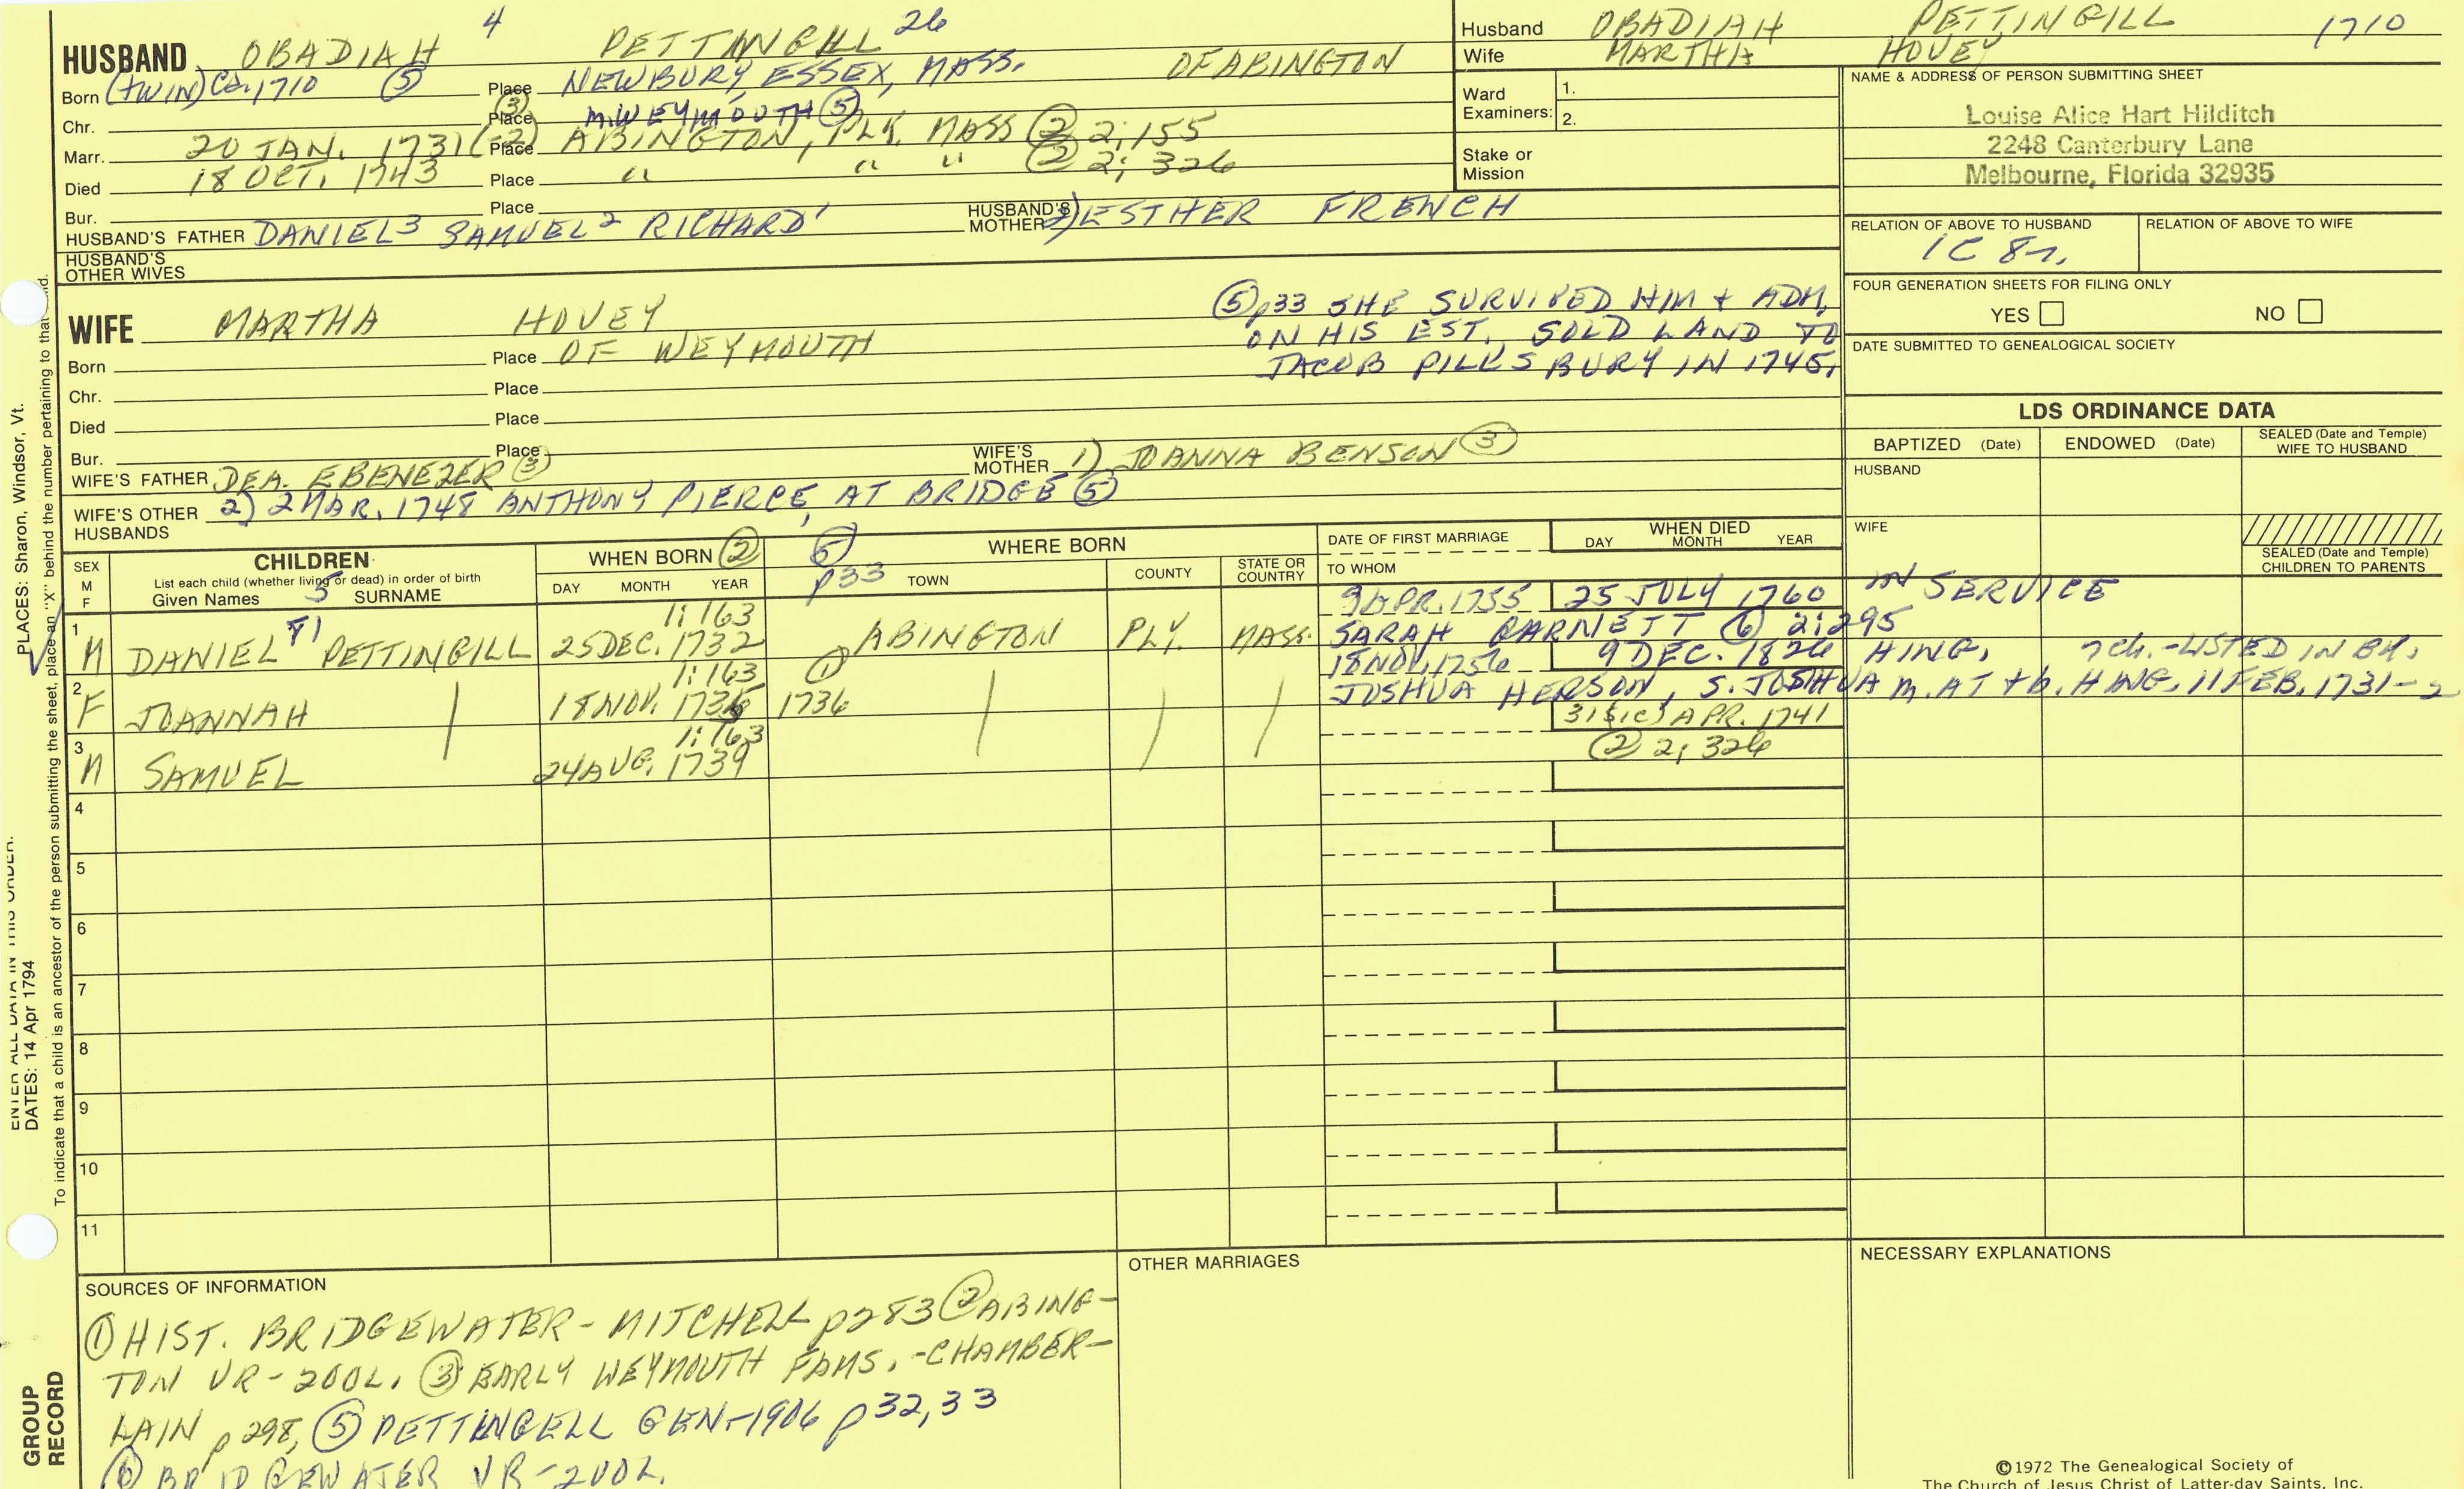 4 26
HUSBAND OBADIAH PETTINGILL
Born (TWIN) CA. 1710 (5) Place NEWBURY, ESSEX, MASS. OF ABINGTON
Chr. (3) Place M. WEYMOUTH (5)
Marr. 20 JAN. 1731(-2) Place ABINGTON, PLY. MASS (2) 2;155
Died 18 OCT. 1743 Place " " " (2) 2; 326
Bur. Place
HUSBAND'S FATHER DANIEL3 SAMUEL2 RICHARD1 HUSBAND'S MOTHER 2) ESTHER FRENCH
HUSBAND'S OTHER WIVES
WIFE MARTHA HOVEY
Born Place OF WEYMOUTH
Chr. Place
Died Place
Bur. Place
(5) p33 SHE SURVIVED HIM + ADM.
ON HIS EST. SOLD LAND TO
JACOB PILLSBURY IN 1745.
WIFE'S FATHER DEA. EBENEZER (3) WIFE'S MOTHER 1) JOANNA BENSON (3)
WIFE'S OTHER HUSBANDS 2) 2 MAR. 1748 ANTHONY PIERCE, AT BRIDGE (5)
Husband OBADIAH PETTINGILL 1710
Wife MARTHA HOVEY
Ward Examiners: 1.
2.
Stake or Mission
NAME & ADDRESS OF PERSON SUBMITTING SHEET
Louise Alice Hart Hilditch
2248 Canterbury Lane
Melbourne, Florida 32935
RELATION OF ABOVE TO HUSBAND RELATION OF ABOVE TO WIFE
1C 8r.
FOUR GENERATION SHEETS FOR FILING ONLY
YES NO
DATE SUBMITTED TO GENEALOGICAL SOCIETY
LDS ORDINANCE DATA
BAPTIZED (Date) ENDOWED (Date) SEALED (Date and Temple) WIFE TO HUSBAND
HUSBAND
WIFE
SEALED (Date and Temple) CHILDREN TO PARENTS
SEX M F
CHILDREN
List each child (whether living or dead) in order of birth
Given Names 5 SURNAME
WHEN BORN (2)
DAY MONTH YEAR
(5) p33
WHERE BORN
TOWN COUNTY STATE OR COUNTRY
DATE OF FIRST MARRIAGE
TO WHOM
WHEN DIED
DAY MONTH YEAR
1:163 9 APR. 1755 25 JULY 1760 IN SERVICE
1 M DANIEL 81 PETTINGILL 25 DEC. 1732 ABINGTON PLY. MASS. SARAH GARNETT (6) 2;295
1:163 (1) 18 NOV. 1756 9 DEC. 1826 HING. 7 ch.-LISTED IN BK.
2 F JOANNAH 18 NOV. 1735 1736 JOSHUA HERSON, S. JOSHUA M. AT + b. HING. 11 FEB. 1731-2
1:163 31 (sic) APR. 1741
3 M SAMUEL 24 AUG. 1739 (2) 2; 326
4
5
6
7
8
9
10
11
SOURCES OF INFORMATION
(1) HIST. BRIDGEWATER - MITCHELL p283 (2) ABING-
TON VR - 2 VOL. (3) EARLY WEYMOUTH FAMS. - CHAMBER-
LAIN p 298, (5) PETTINGELL GEN.-1906 p 32, 33
(6) BRIDGEWATER VR - 2 VOL.
OTHER MARRIAGES
NECESSARY EXPLANATIONS
©1972 The Genealogical Society of
The Church of Jesus Christ of Latter-day Saints, Inc.
ENTER ALL DATA IN THIS ORDER.
DATES: 14 Apr 1794 PLACES: Sharon, Windsor, Vt.
To indicate that a child is an ancestor of the person submitting the sheet, place an "X" behind the number pertaining to that
GROUP
RECORD